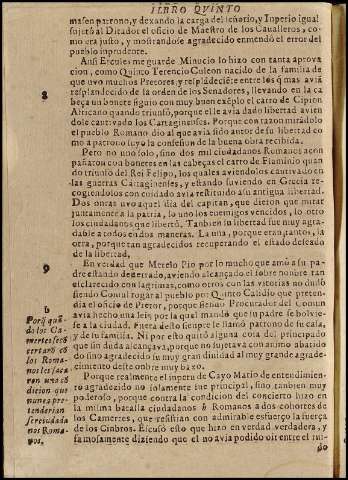 LIBRO QVINTO
masen patrono, y dexando la carga del señorio, y Imperio igual
sujetò al Ditador el oficio de Maestro de los Caualleros, co-
mo era justo, y mostrandose agradecido enmendò el error del
pueblo imprudente.
8
Ansi Ercules me guarde Minucio lo hizo con tanta aprova
cion, como Quinto Terencio Culeon nacido de la familia de
que uvo muchos Pretores, y resplãdeciẽte entre los q̃ mas aviã
resplandecido de la orden de los Senadores, llevando en la ca
beça un bonete siguio con muy buen exẽplo el carro de Cipion
Africano quando triunfò, porque el le avia dado libertad avien
dole cautivado los Cartagineses. Porque con razon miràdolo
el pueblo Romano dio al que avia sido autor de su libertad co
mo a patrono suyo la confesiun de la buena obra recibida.
Pero no uno solo, sino dos mil ciudadanos Romanos acom
pañaron con bonetes en las cabeças el carro de Flaminio quan
do triunfò del Rei Felipo, los quales aviendolos cautivado en
las guerras Cartaginenses, y estando sirviendo en Grecia re-
cogiendolos con cuidado avia restituido a su antigua libertad.
Dos onras uvo aquel dia del capitan, que dieron que mirar
juntamente a la patria, lo uno los enemigos vencidos, lo otro
los ciudadanos que libertò. Tambien su libertad fue muy agra-
dable a todos en dos maneras. La una, porque eran tantos, la
otra, porque tan agradecidos recuperando el estado deseado
de la libertad.
9
En verdad que Metelo Pio por lo mucho que amò a su pa-
dre estando desterrado, aviendo alcançado el sobre nombre tan
esclarecido con lagrimas, como otros con las vitorias no dudò
siendo Consul rogar al pueblo por Quinto Calidio que preten-
dia el oficio de Pretor, porque siendo Procurador del Comun
avia hecho una lei por la qual mandò que su padre se bolvie-
se a la ciudad. Fuera desto siempre le llamò patrono de su casa,
y de su familia. Ni por esto quitò alguna cosa del principado
que sin duda alcançava, porque no sujetava con animo abatido
sino agradecido su muy gran dinidad al muy grande agrade-
cimiento deste ombre muy baxo.
Porque realmente el impetu de Cayo Mario de entendimien-
to agradecido no solamente fue principal, sino tambien muy
poderoso, porque contra la condicion del concierto hizo en
la misma batalla ciudadanos b Romanos a dos cohortes de
los Camertes, que resistian con admirable esfuerço la fuerça
de los Cinbros. Escusò esto que hizo en verdad verdadera, y
famosamente diziendo que el no avia podido oir entre el rui-
do
b
Porq̃ quã
do los Ca-
mertes se cõ
certaron cõ
los Roma-
nos les saca
ron una cõ
dicion que
nunca pre-
tenderian
ser ciudada
nos Roma-
nos.